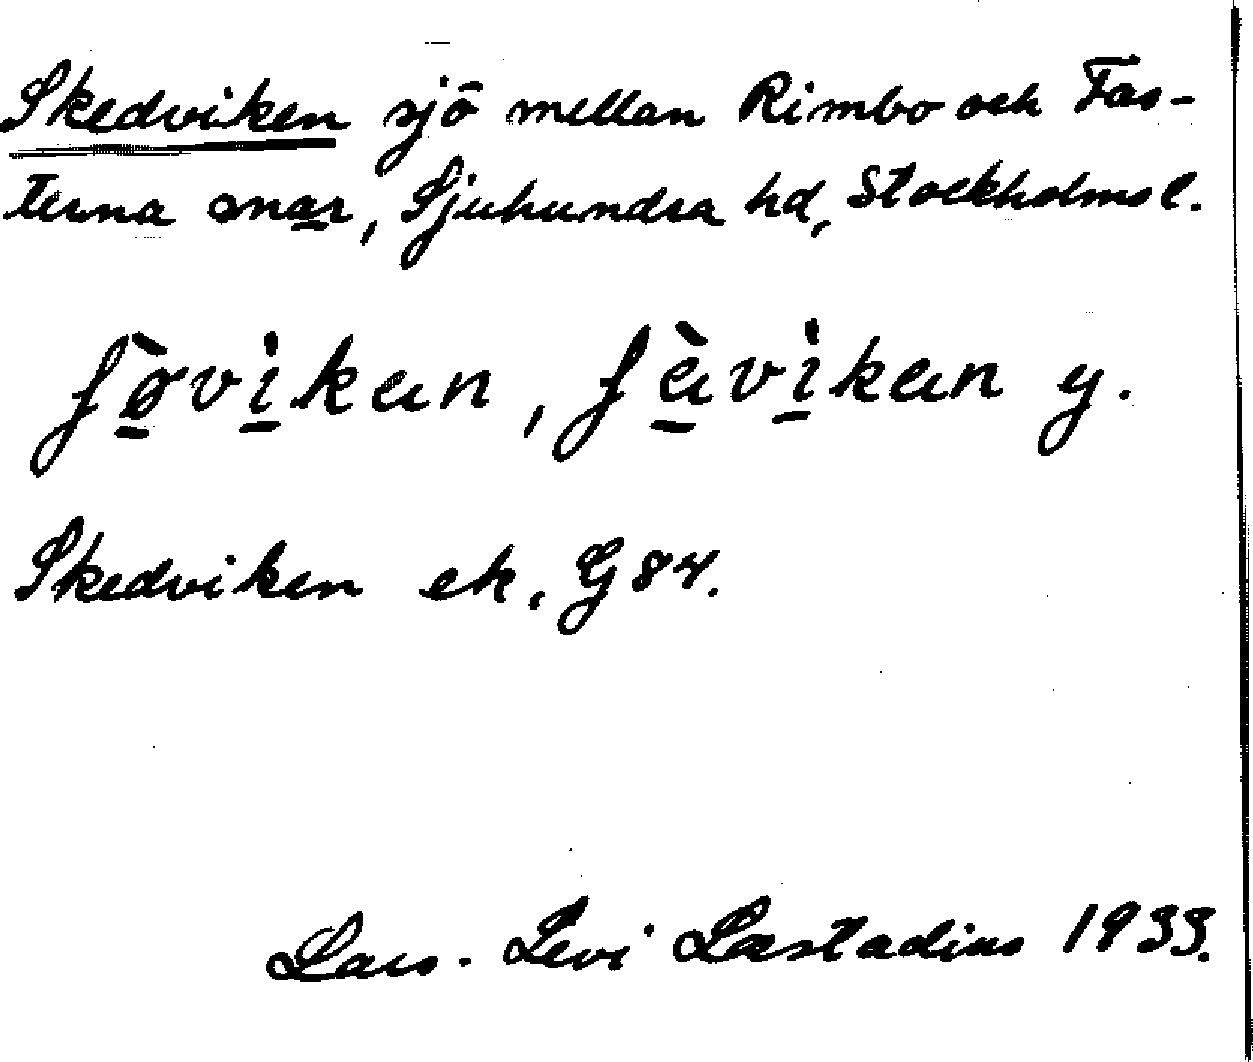 Skedviken sjö mellan Rimbo och Fas-
terna snar, Sjuhundra hd, Stockholms l.
y.
Skedviken ek, G 84.
Lars-Levi Læstadius 1933.